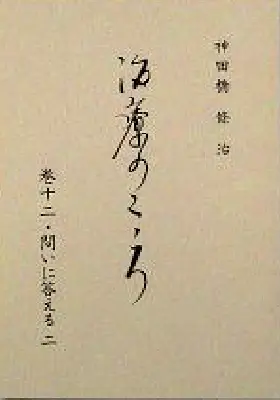 神田橋 條治
治療のこころ
巻十二・問いに答える 二